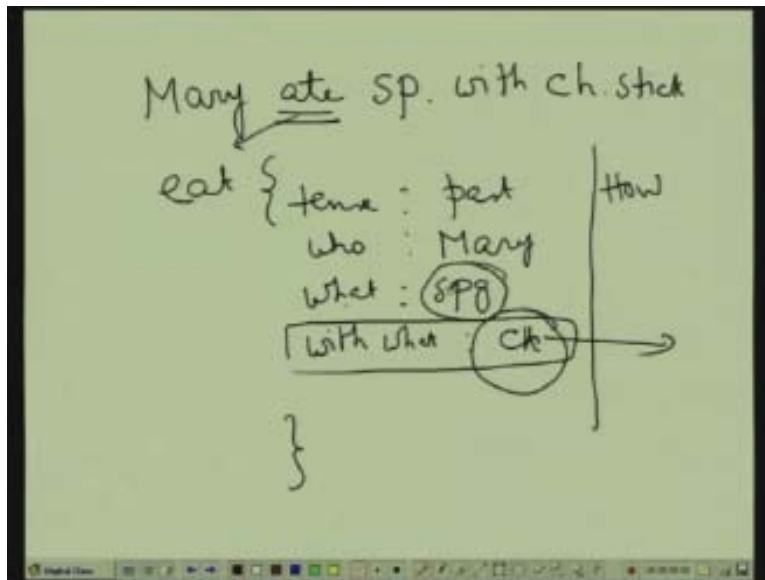 Mary ate sp. with ch. stick
eat {
tense : past
How
who : Mary
what : spg
with what : ch
}